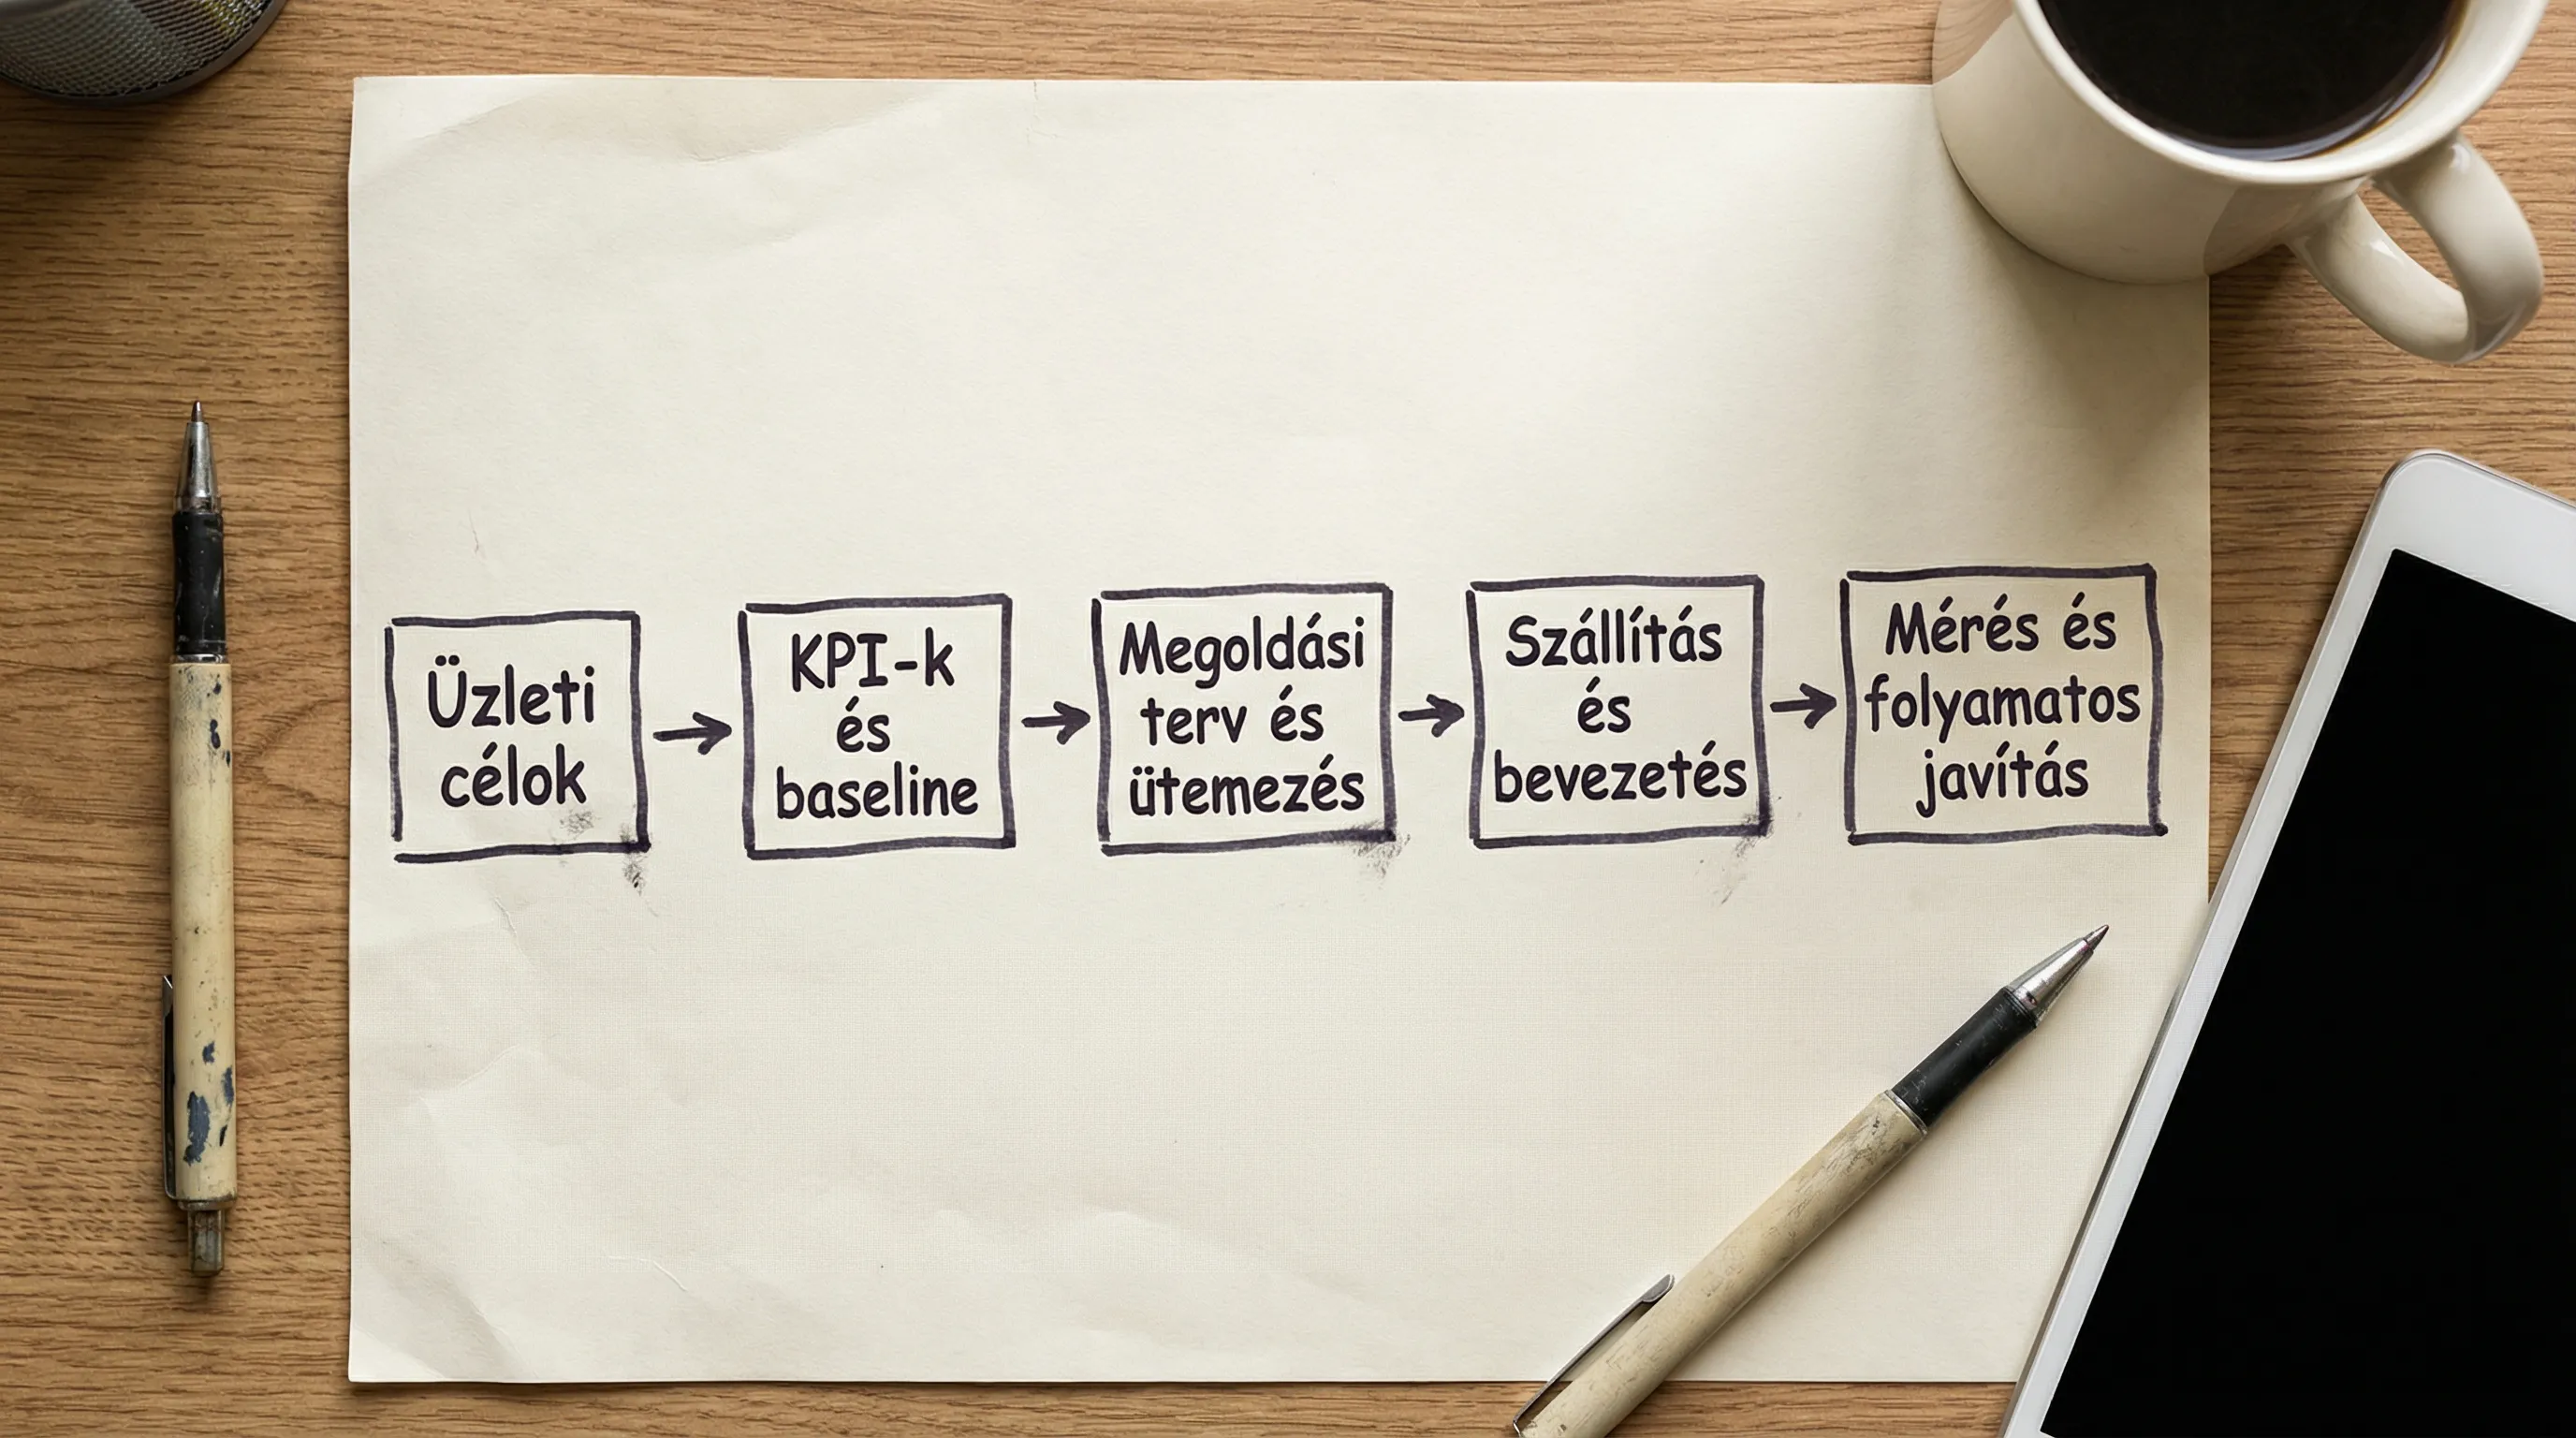 Üzleti
célok
KPI-k
és
baseline
Megoldási
terv és
ütemezés
Szállítás
és
bevezetés
Mérés és
folyamatos
javítás